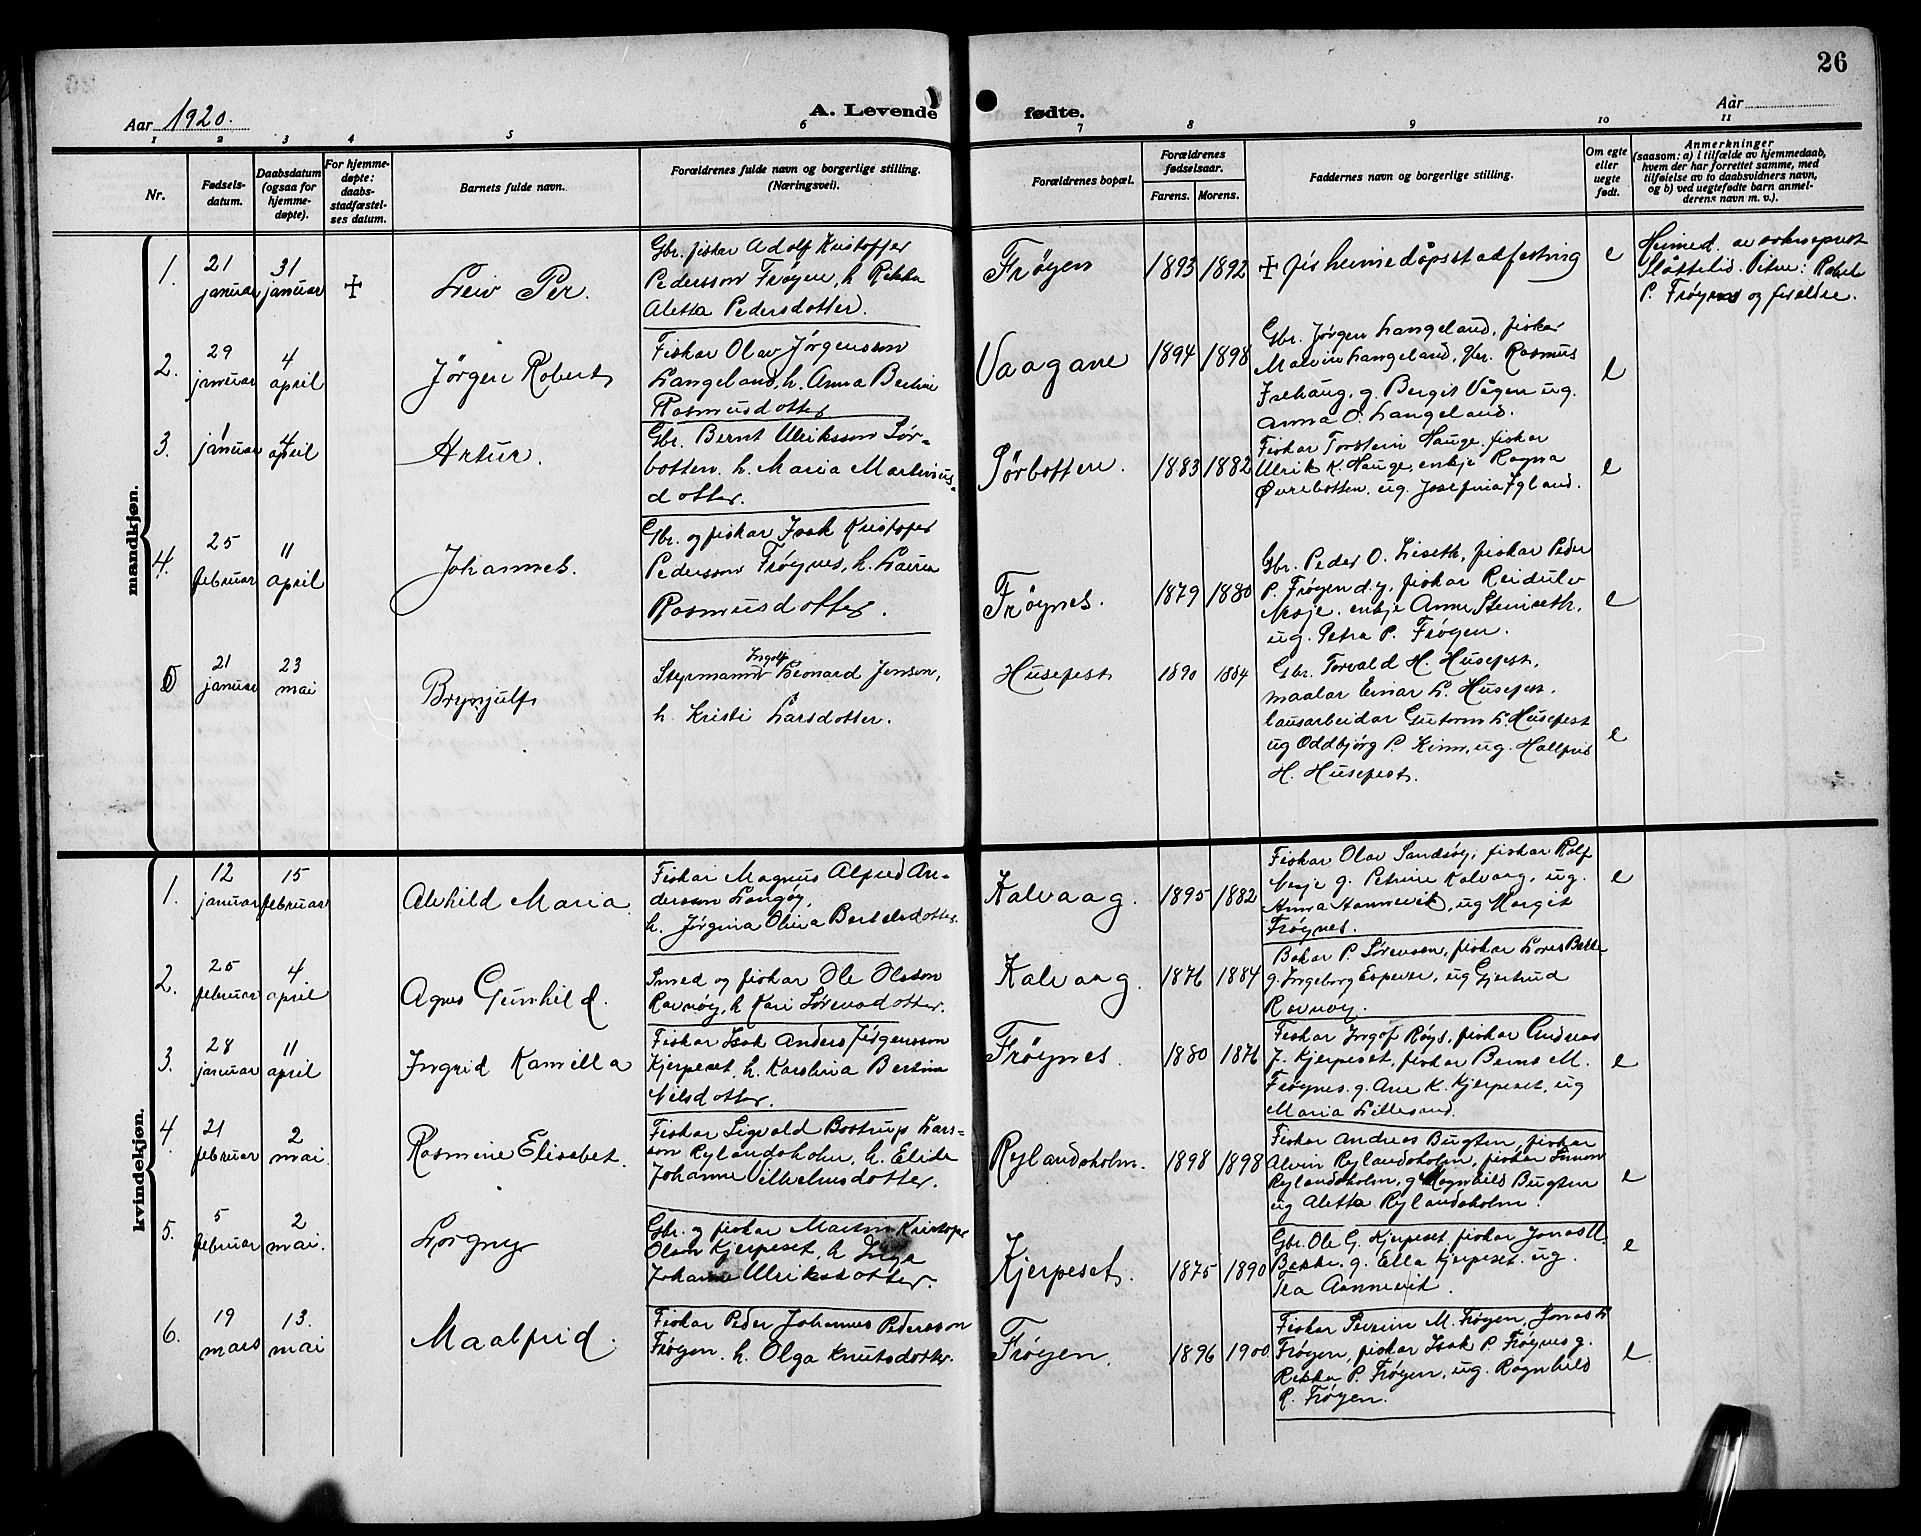 26
Aar 1920.
A. Levende fødte.
Aar
1 2 3 4 5 6 7 8 9 10 11
Nr.
Fødsels-
datum.
Daabsdatum
(ogsaa for
hjemme-
døpte).
For hjemme-
døpte:
daabs-
stadfæstel-
ses datum.
Barnets fulde navn.
Forældrenes fulde navn og borgerlige stilling.
(Næringsvei).
Forældrenes bopæl.
Forældrenes
fødselsaar.
Farens. Morens.
Faddernes navn og borgerlig stilling.
Om egte
eller
uegte
født.
Anmerkninger
(saasom: a) i tilfælde av hjemmedaab,
hvem der har forrettet samme, med
tilføielse av to daabsvidners navn,
og b) ved uegtefødte barn anmel-
derens navn m. v.).
mandkjøn.
1.
21
januar
31
januar
+
Leiv Per.
Gbr. fiskar Adolf Kristoffer
Pedersson Frøyen, h. Rikka
Aletta Pedersdotter.
Frøyen
1893 1892
+ fis heimedåpsstadfesting
e
Heimed. av sokneprest
Slåttelid. Vitne:
P. Frøynes og foreldre.
2.
29
januar
4
april
Jørgen Robert
Fiskar Olav Jørgensson
Langeland, h. Anna Bertine
Rasmusdotter
Vaagane
1894 1898
Gbr. Jørgen Langeland, fiskar
Malvin Langeland, gbr. Rasmus
g. Bergit Vågen ug.
Anna O. Langeland.
e
3.
1
januar
4
april
Artur.
Gbr. Bernt Ulriksson Sør-
botten. h. Maria Martinus-
dotter.
Sørbotten.
1883 1882
Fiskar Torstein Hauge, fiskar
Ulrik K. Hauge, enkje Ragna
Øvrebotten, ug. Josefina Igland.
e
4.
25
februar
11
april
Johannes.
Gbr. og fiskar Isak Kristofer
Pedersson Frøynes, h. Laura
Rasmusdotter.
Frøynes.
1879 1880
Gbr. Peder O. Liseth, fiskar Peder
P. Frøyen d.y, fiskar Reidulv
Nesje. enkje Anne Steinseth,
ug. Petra P. Frøyen.
e
5
21
januar
23
mai
Brynjulf
Ingolf
Styrmann Leonard Jensen,
h. Kristi Larsdotter.
Husefest
1890 1884
Gbr. Torvald H. Husefest,
maalar Einar L. Husefest.
lausarbeidar Gutorm L. Husefest
ug Oddbjørg P. Kinn, ug. Hallfrid
H. Husefest.
e
kvindekjøn.
1.
12
januar
15
februar
Alvhild Maria
Fiskar Magnus Alfred An-
dersson Langøy,
h. Jørgina Olivia Bertelsdotter.
Kalvaag.
1895 1882
Fiskar Olav Sandsøy, fiskar Rolf
Nesje g. Petrine Kalvaag, ug.
Anna ug Margit
Frøynes.
e
2.
25
februar
4
april
Agnes Gunhild.
Smed og fiskar Ole Olsson
Ravnøy, h. Kari Sørensdotter.
Kalvaag.
1876 1884
Bakar P. Sørensen, fiskar Lars Bakke
g. Ingeborg Espeset, ug Gjertrud
Ravnøy.
3.
28
januar
11
april
Ingrid Kamilla
Fiskar Isak Anders Jørgensson
Kjerpeset, h. Karolina Bertina
Nilsdotter.
Frøynes.
1880 1876
Fiskar Ingolf Røys, fiskar Andreas
J. Kjerpeset, fiskar Bernt M.
Frøynes. g. Ane K. Kjerpeset, ug
Maria Lillesund.
e
4
21
februar
2
mai.
Rasmine Elisabet.
Fiskar Sigvald Bostrup Lars-
son Rylandsholm, h. Elida
Johanne Vilhelmsdotter.
Rylandsholm.
1898 1898
Fiskar Andreas Bugten, fiskar
Alvin Rylandsholm, fiskar Simon
Rylandsholm, g Magnhild Bugten
ug Aletta Rylandsholm.
e
5.
5
februar
2
mai.
Lorgny
Gbr. og fiskar Martin Kristofer
Olsen Kjerpeset, h Inga
Johanne Ulriksdotter.
Kjerpeset.
1875 1890
Gbr. Ole G. Kjerpeset. fiskar Jonas U.
Bakke. g. Ella Kjerpeset. ug.
Tea Aannevik.
e
6.
19
mars
13.
mai
Maalfrid.
Fiskar Peder Johannes Pedersson
Frøyen. h. Olga Knutsdotter.
Frøyen.
1896 1900
Fiskar Severin M. Frøyen, Jonas L
Frøyen, fiskar Isak P. Frøynes g.
Rikka P. Frøyen, ug. Ragnhild
R. Frøyen.
e